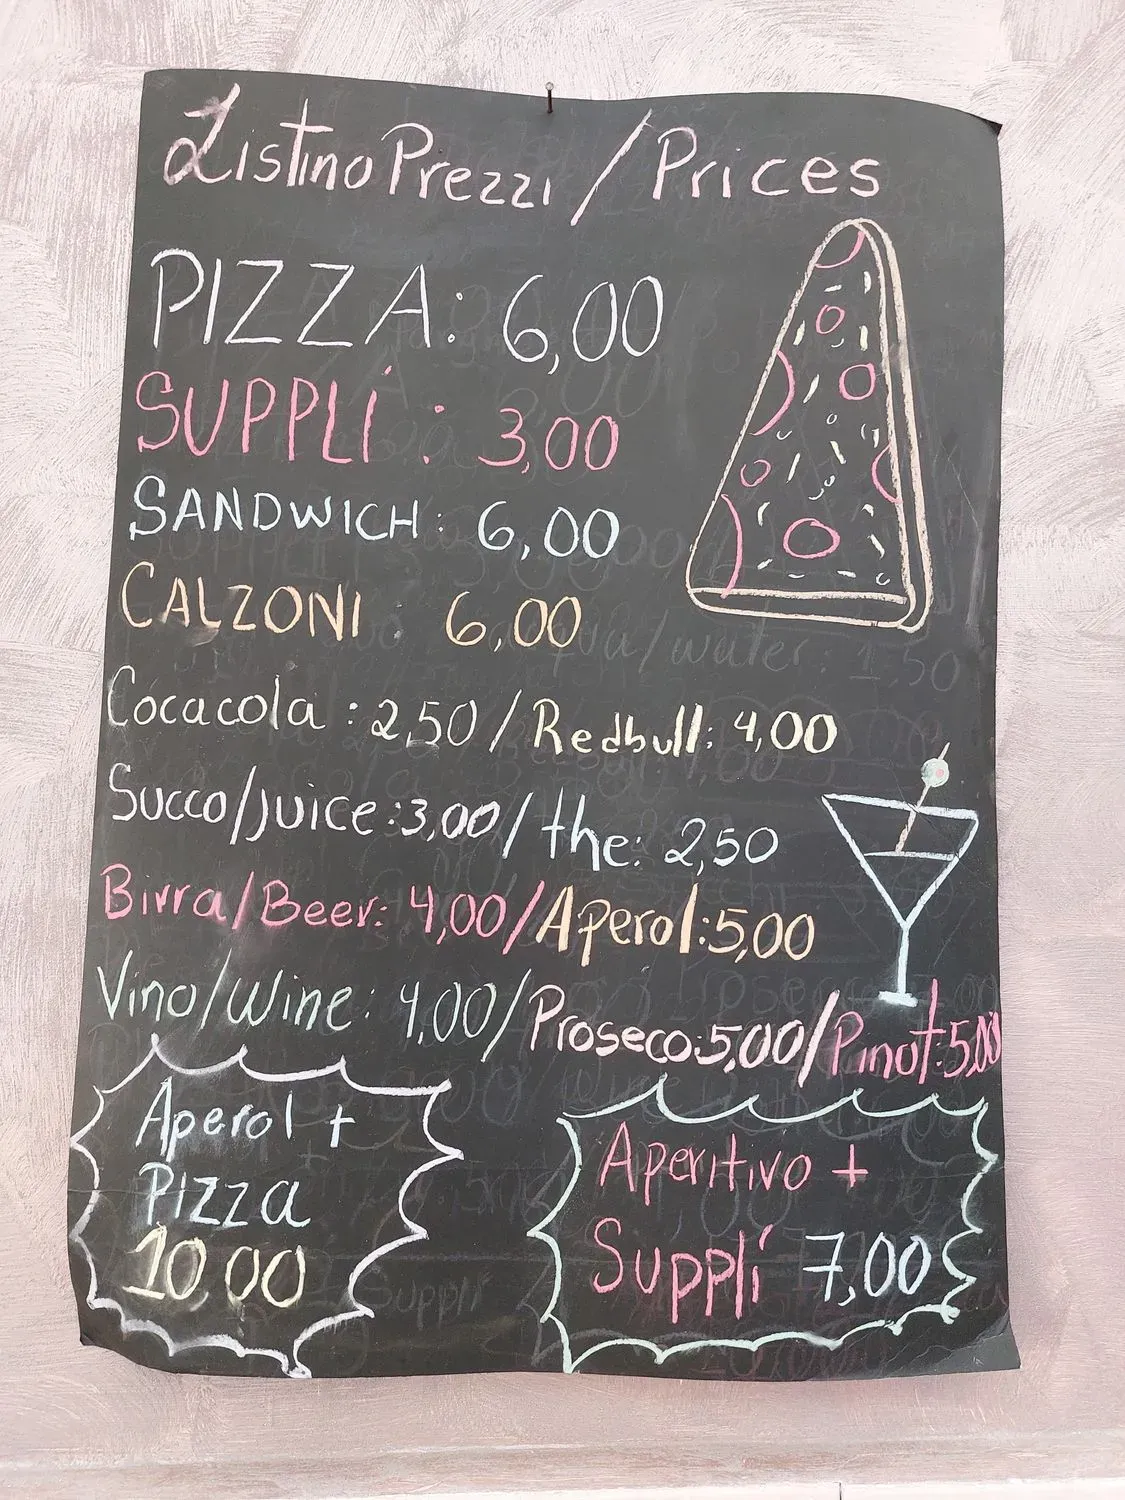 Listino Prezzi / Prices
PIZZA: 6,00
SUPPLÍ : 3,00
SANDWICH: 6,00
CALZONI : 6,00
Cocacola : 2,50 / Redbull: 4,00
Succo/Juice: 3,00 / the: 2,50
Birra/Beer: 4,00 / Aperol: 5,00
Vino/Wine: 4,00 / Proseco: 5,00 / Pinot: 5,00
Aperol +
Pizza
10,00
Aperitivo +
Supplí 7,00